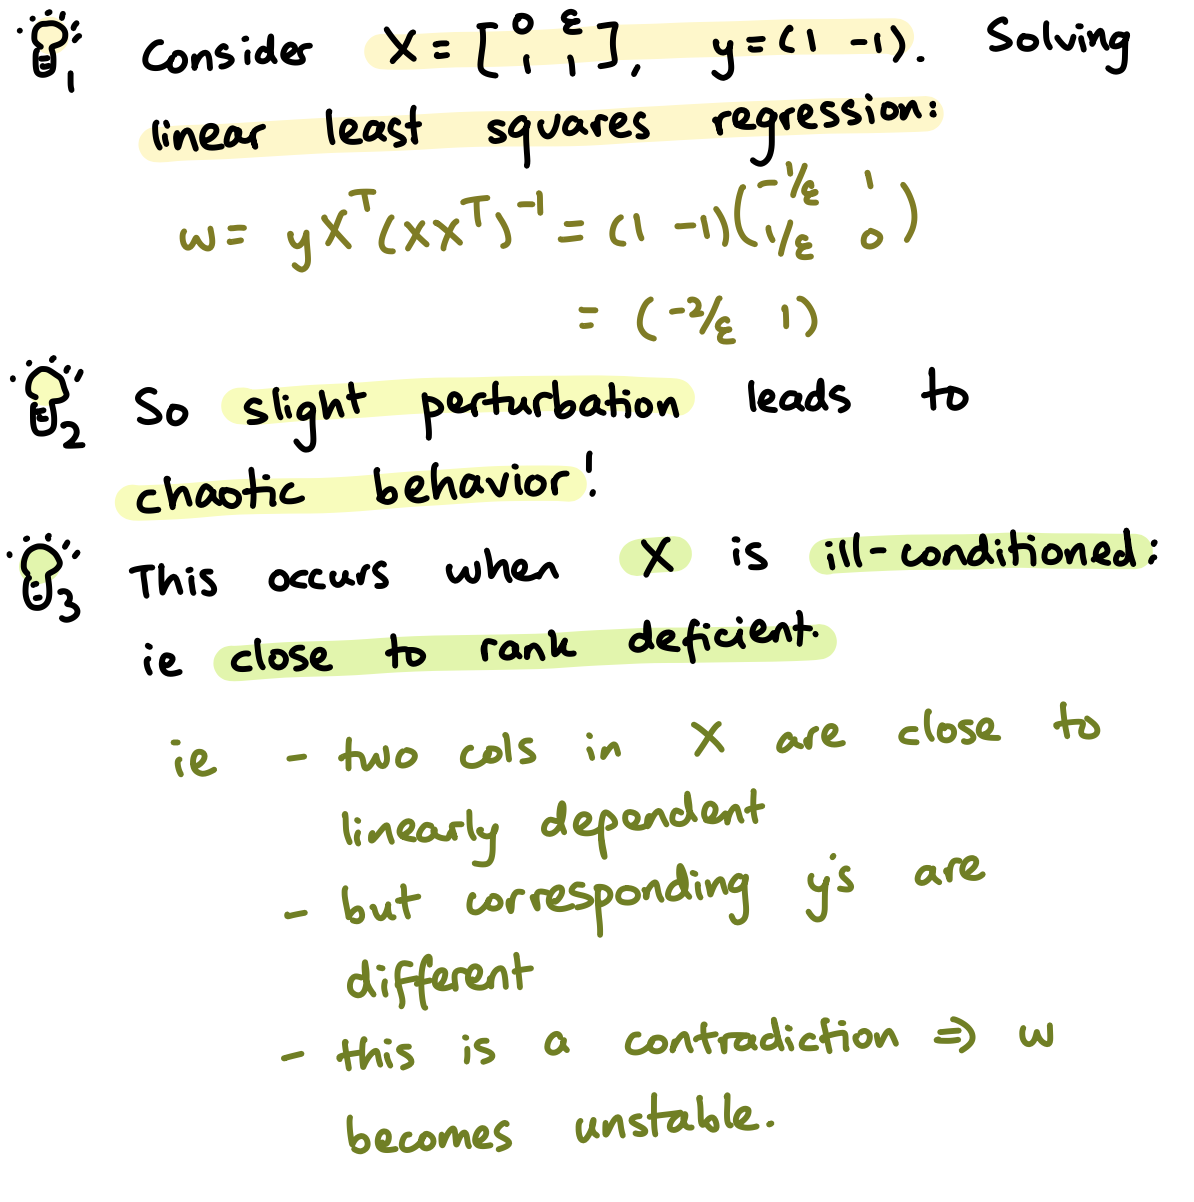 1 Consider X = [0 ε; 1 1], y = (1 -1). Solving
linear least squares regression:
w = yXᵀ(XXᵀ)⁻¹ = (1 -1)(-1/ε 1; 1/ε 0)
= (-2/ε 1)
2 So slight perturbation leads to
chaotic behavior!
3 This occurs when X is ill-conditioned:
ie close to rank deficient.
ie - two cols in X are close to
linearly dependent
- but corresponding y's are
different
- this is a contradiction ⇒ w
becomes unstable.